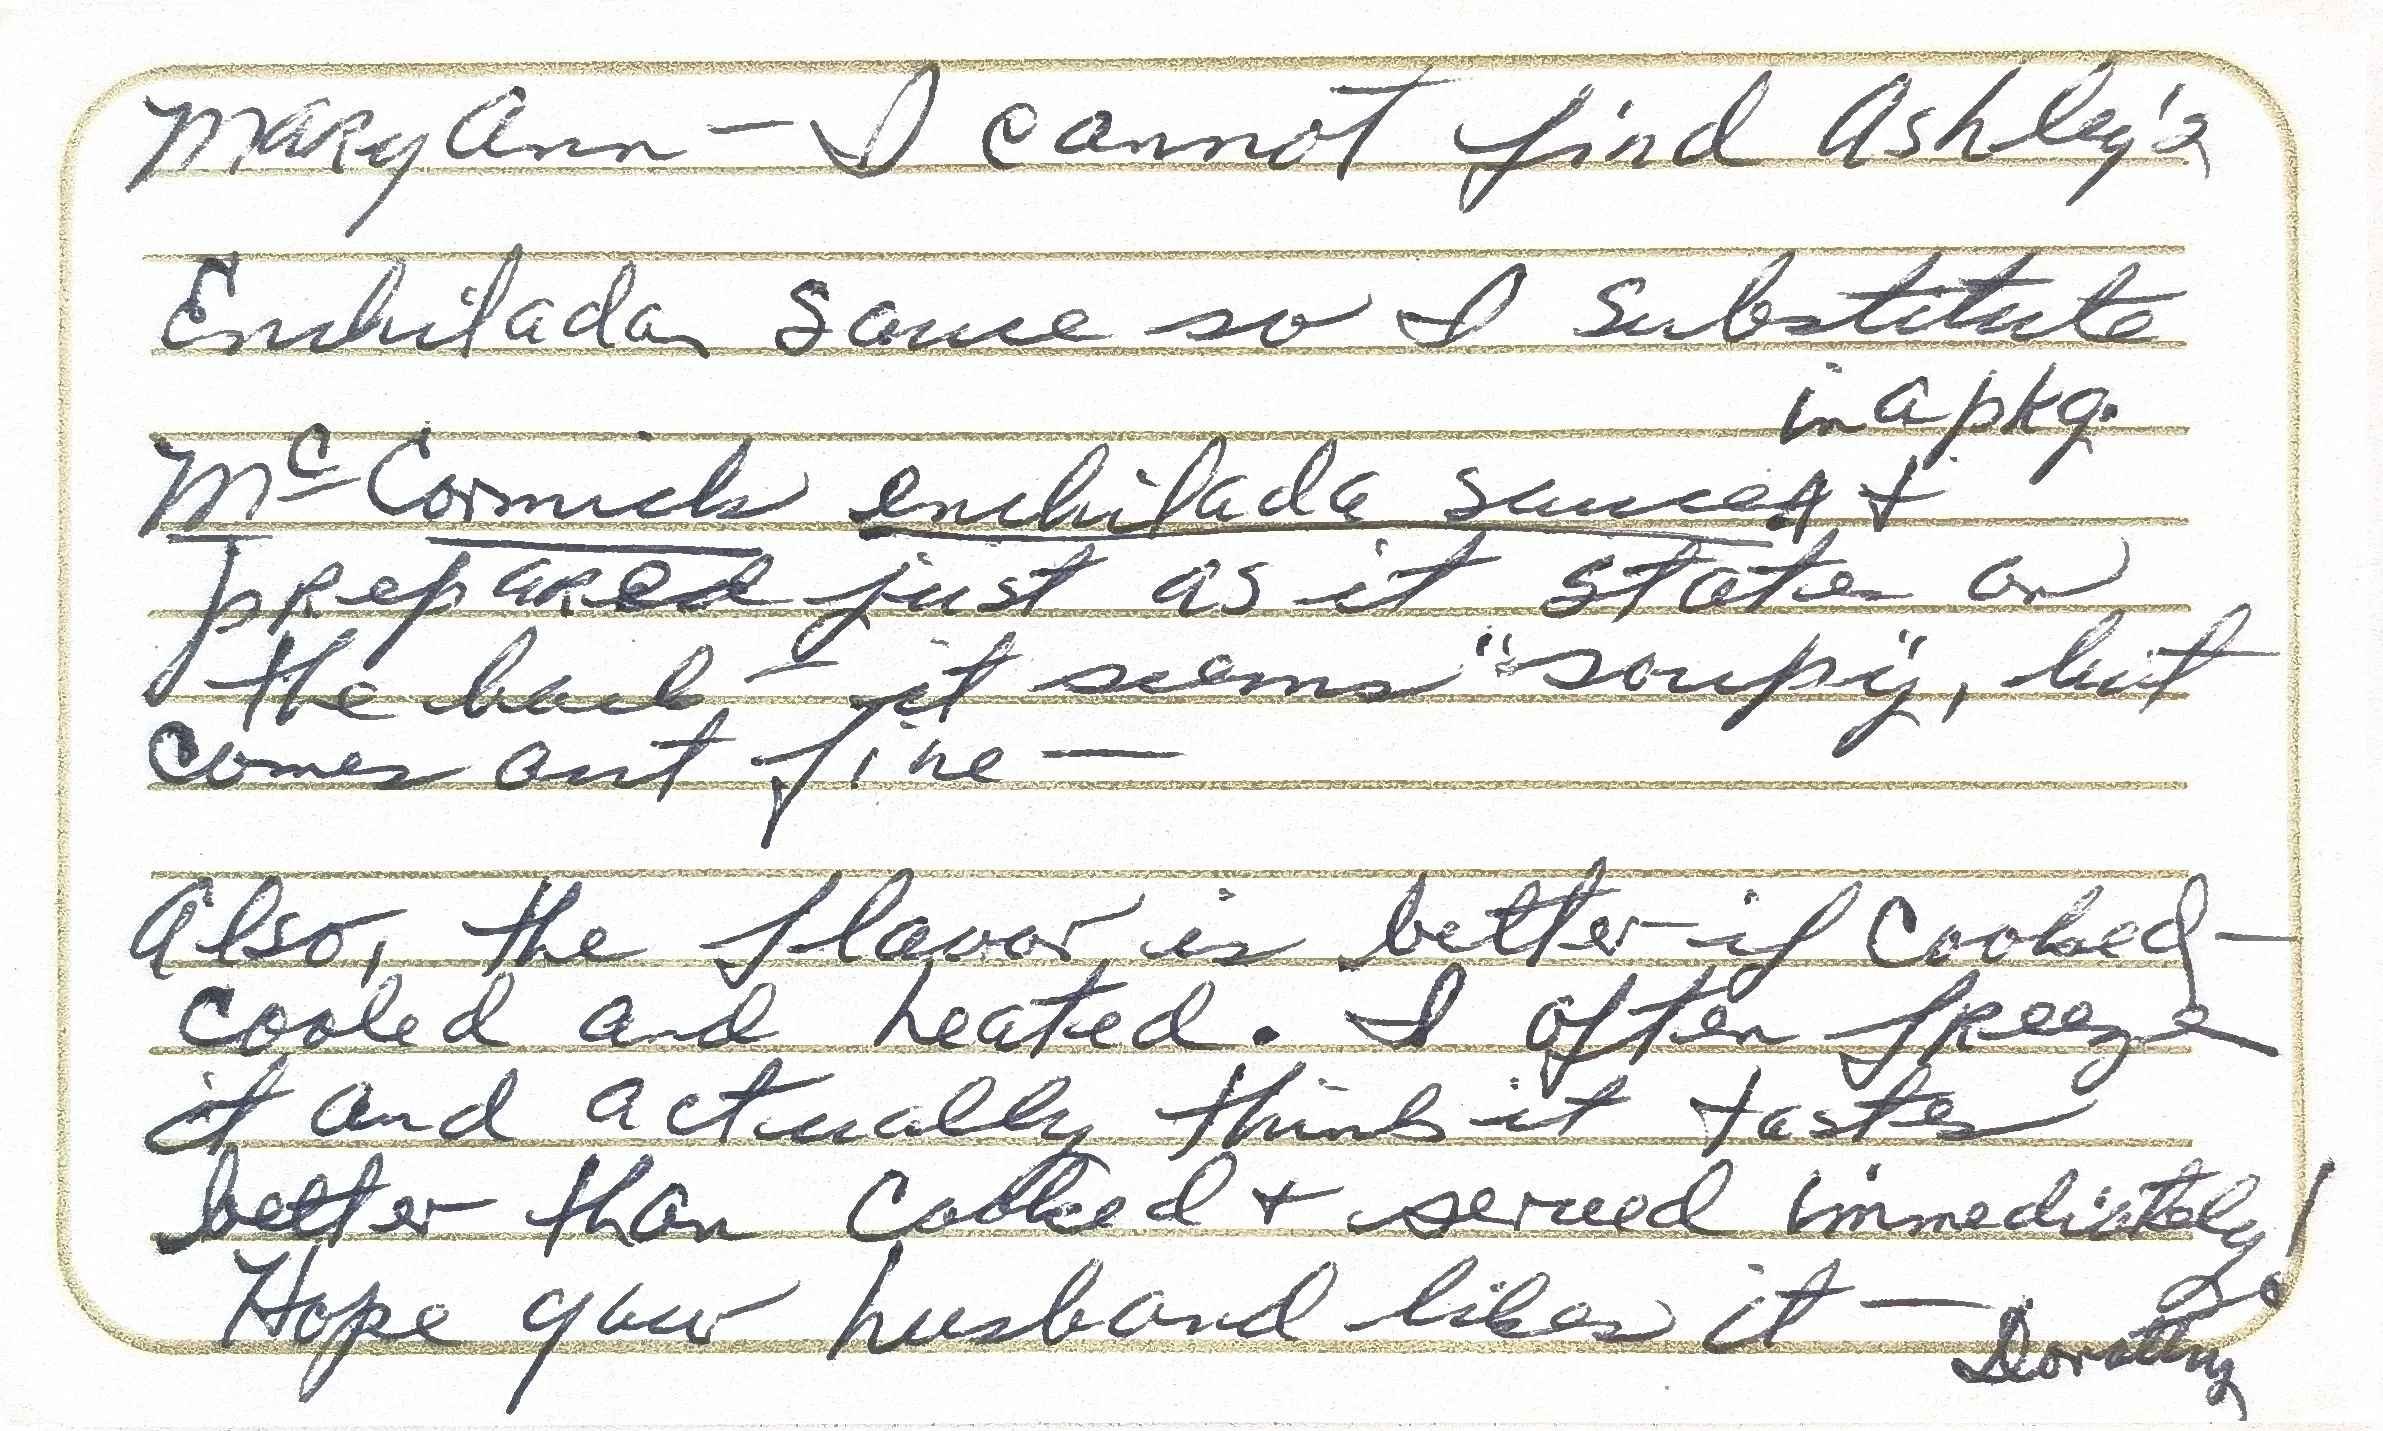 Mary Ann — I cannot find Ashley's
Enchilada Sauce so I substitute
in a pkg.
McCormick enchilada sauce &
prepared just as it states on
the back - it seems "soupy", but
comes out fine —
Also, the flavor is better if cooked -
cooled and heated. I often freeze
it and actually think it tastes
better than cooked & served immediately!
Hope your husband likes it —
Dorothy